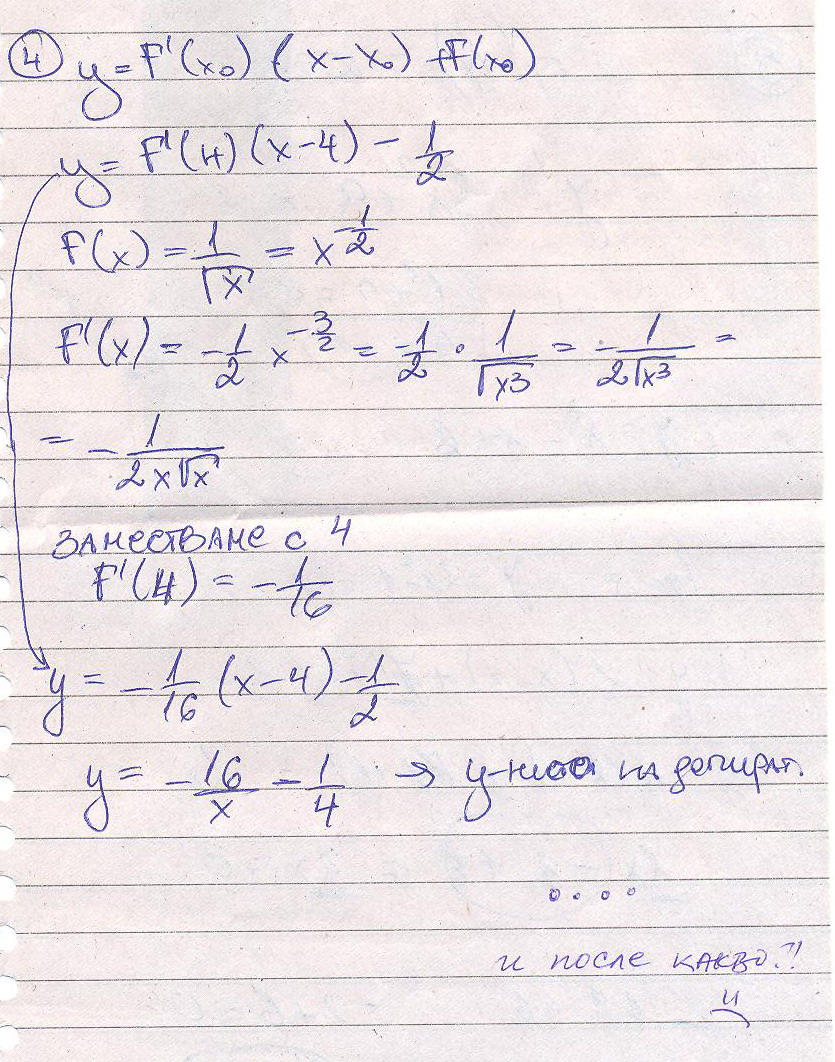 ④ y = F'(x₀) (x-x₀) + F(x₀)
y = F'(4) (x-4) - 1/2
F(x) = 1/√x = x^(-1/2)
F'(x) = -1/2 x^(-3/2) = -1/2 · 1/√x³ = -1/(2√x³) =
= - 1/(2x√x)
ЗАМЕСТВАНЕ С 4
F'(4) = - 1/16
y = - 1/16 (x-4) - 1/2
y = - 16/x - 1/4 → у-ние на допират.
....
и после какво?!